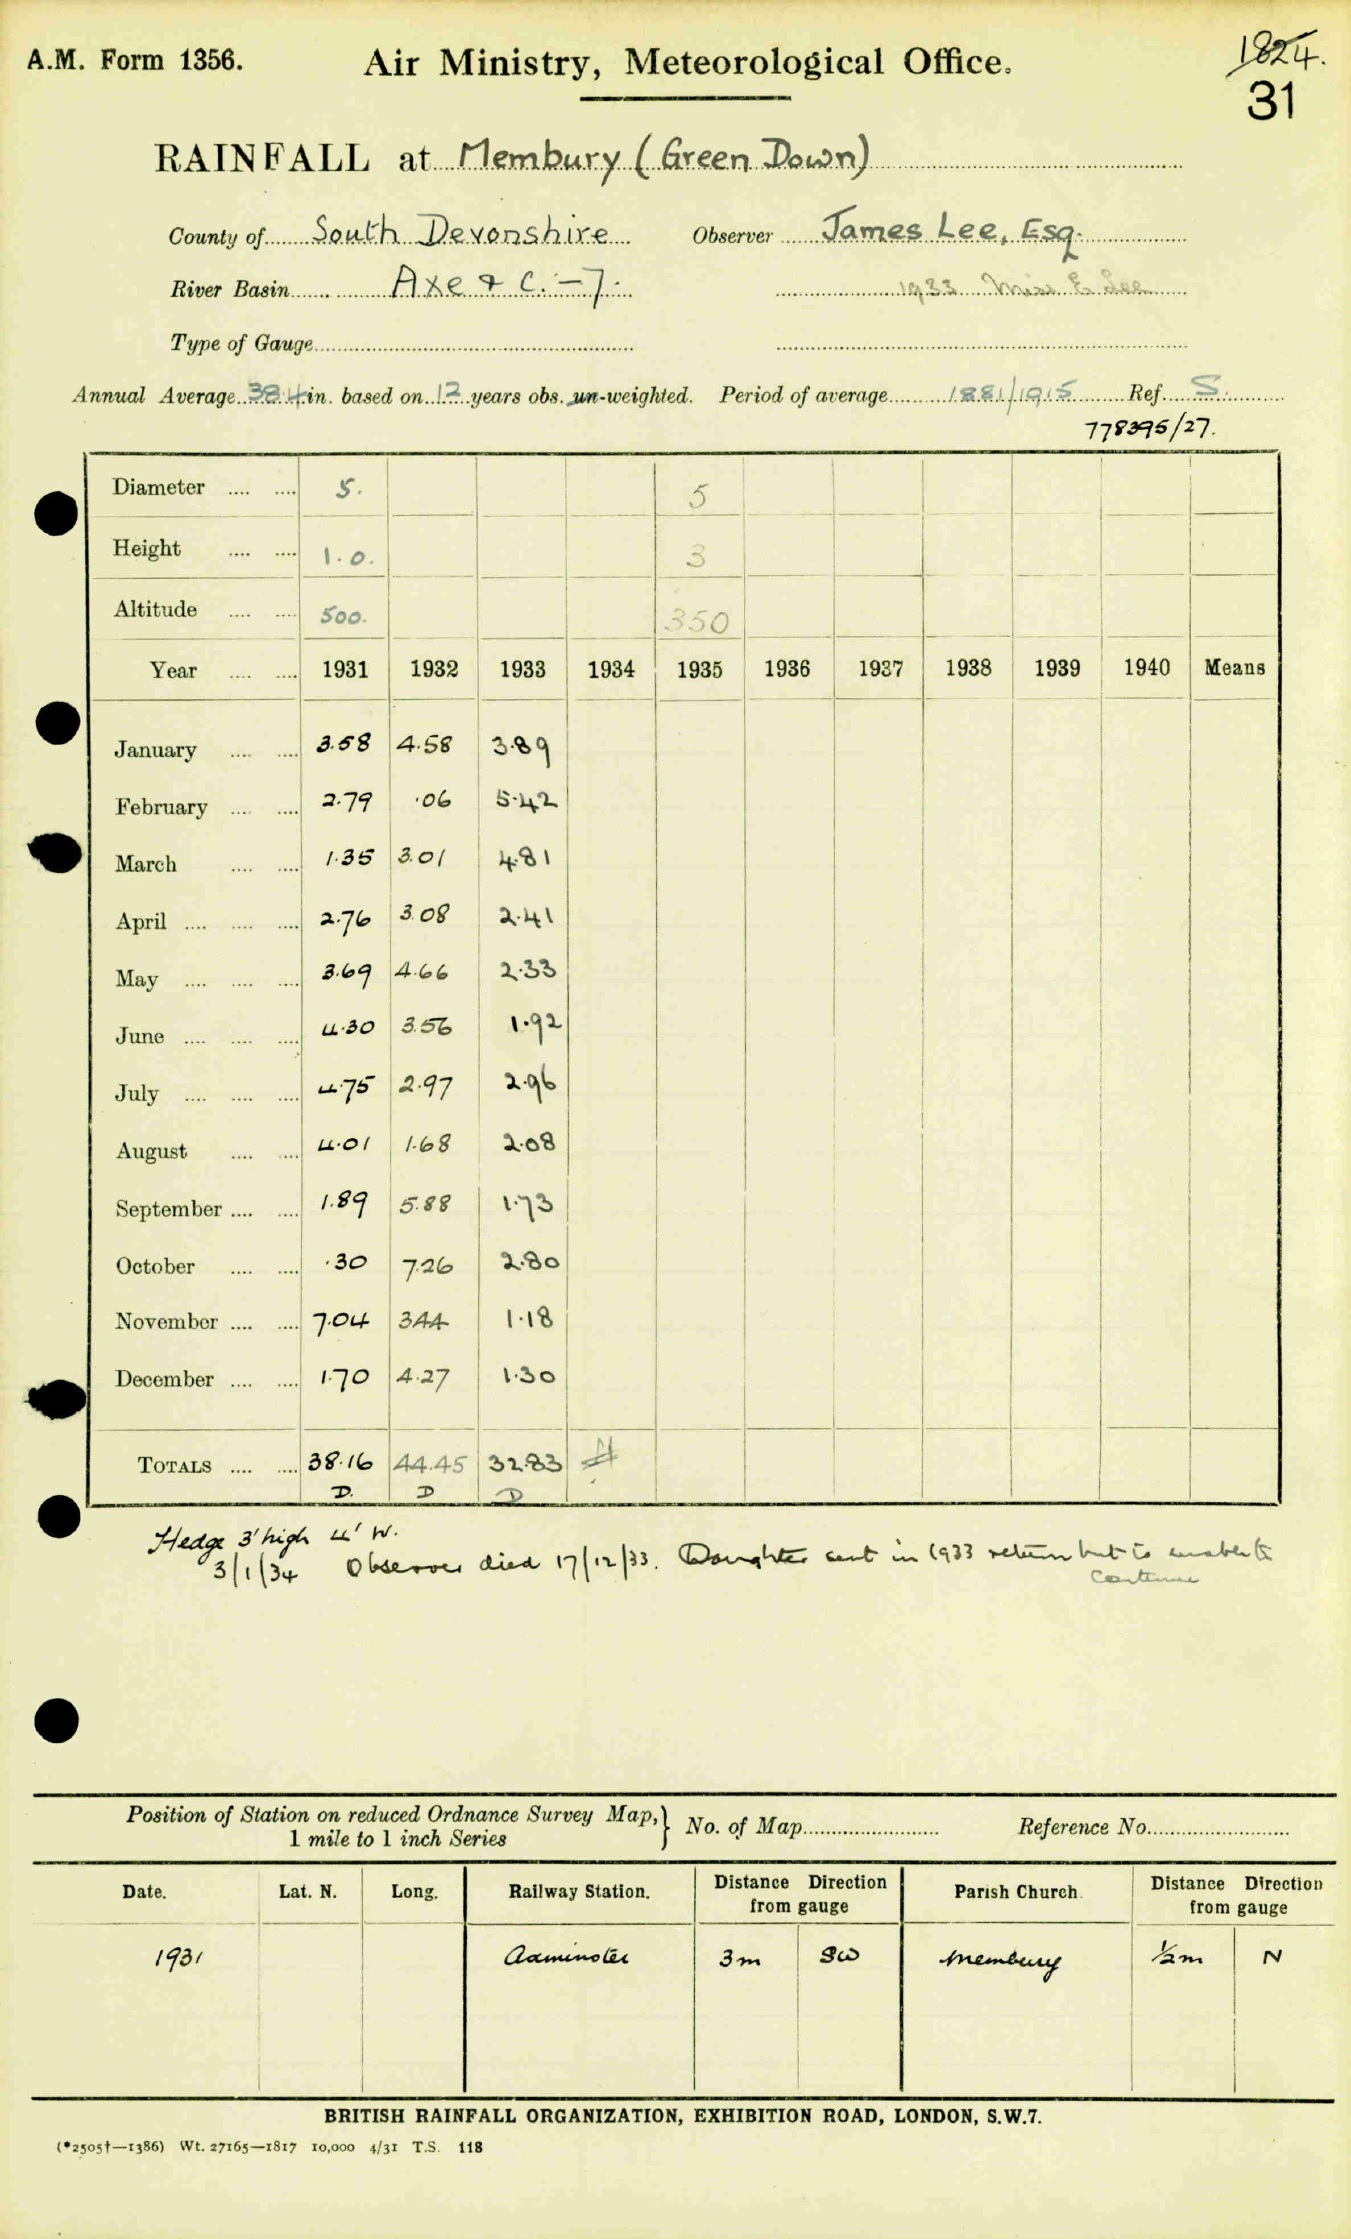 A.M. Form 1356. Air Ministry, Meteorological Office. 1824.
31
RAINFALL at Membury (Green Down)
County of South Devonshire Observer James Lee, Esq.
River Basin Axe & C. - 7. 1933 Miss E Lee
Type of Gauge
Annual Average 38.4 in. based on 12 years obs. un-weighted. Period of average 1881/1915 Ref. S.
778395/27.
Diameter .... .... 5. 5
Height .... .... 1.0. 3
Altitude .... .... 500. 350
Year .... .... 1931 1932 1933 1934 1935 1936 1937 1938 1939 1940 Means
January .... .... 3.58 4.58 3.89
February .... .... 2.79 .06 5.42
March .... .... 1.35 3.01 4.81
April .... .... .... 2.76 3.08 2.41
May .... .... .... 3.69 4.66 2.33
June .... .... .... 4.30 3.56 1.92
July .... .... .... 4.75 2.97 2.96
August .... .... 4.01 1.68 2.08
September .... .... 1.89 5.88 1.73
October .... .... .30 7.26 2.80
November .... .... 7.04 3.44 1.18
December .... .... 1.70 4.27 1.30
TOTALS .... .... 38.16 44.45 32.83
D. D D
Hedge 3' high 4' W.
3/1/34 Observer died 17/12/33. Daughter sent in 1933 return but is unable to
continue
Position of Station on reduced Ordnance Survey Map, } No. of Map Reference No.
1 mile to 1 inch Series
Date. Lat. N. Long. Railway Station. Distance Direction from gauge Parish Church. Distance Direction from gauge
1931 Axminster 3m SW Membury ½m N
BRITISH RAINFALL ORGANIZATION, EXHIBITION ROAD, LONDON, S.W.7.
(*2505†—1386) Wt. 27165—1817 10,000 4/31 T.S. 118